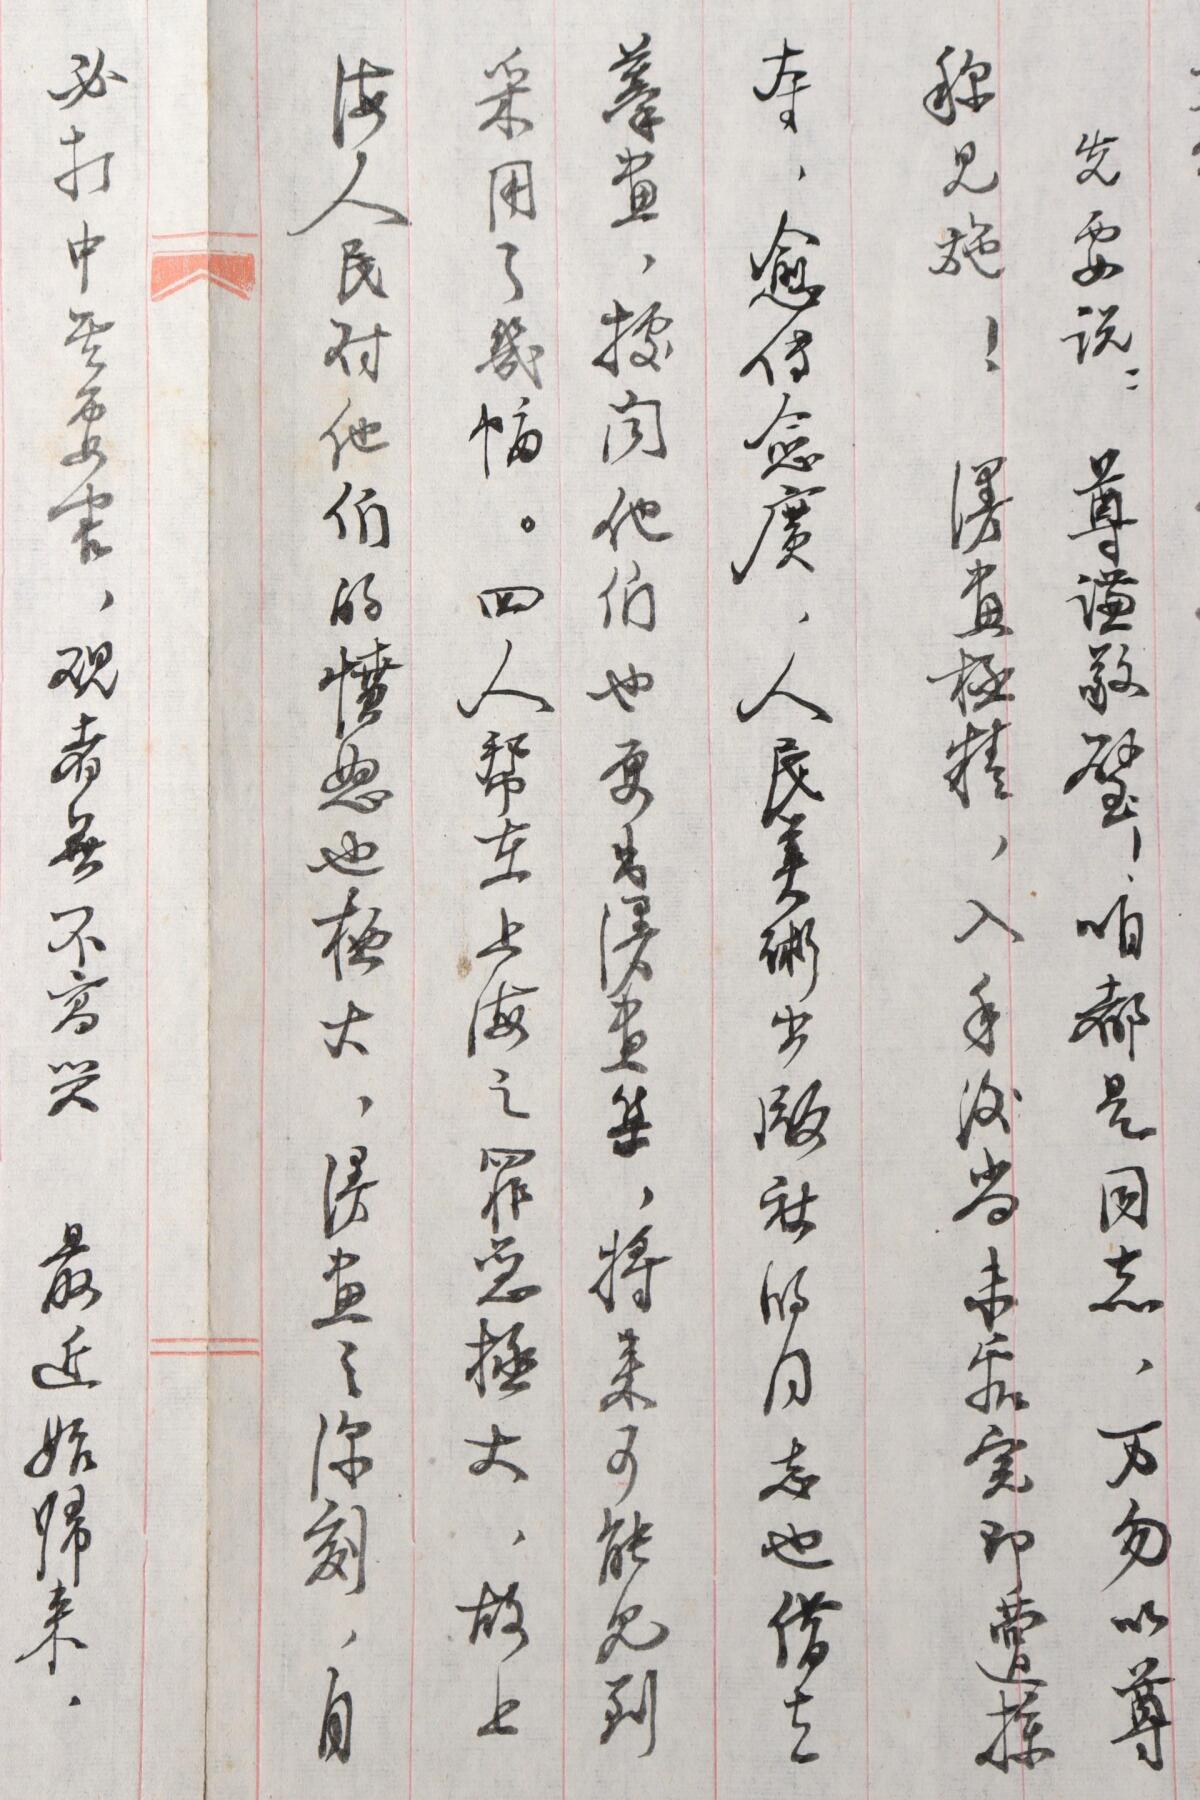 先要说：尊谦敬璧，咱都是同志，万勿以尊
称见施！漫画极精，入手后尚未看完即遭掠
夺，愈传愈广，人民美术出版社的同志也借去
摹画，据闻他们也要出漫画集，将来可能见到
采用了几幅。四人帮在上海之罪恶极大，故上
海人民对他们的愤怒也极大，漫画之深刻，自
必打中其要害，观者无不高兴 最近始归来．